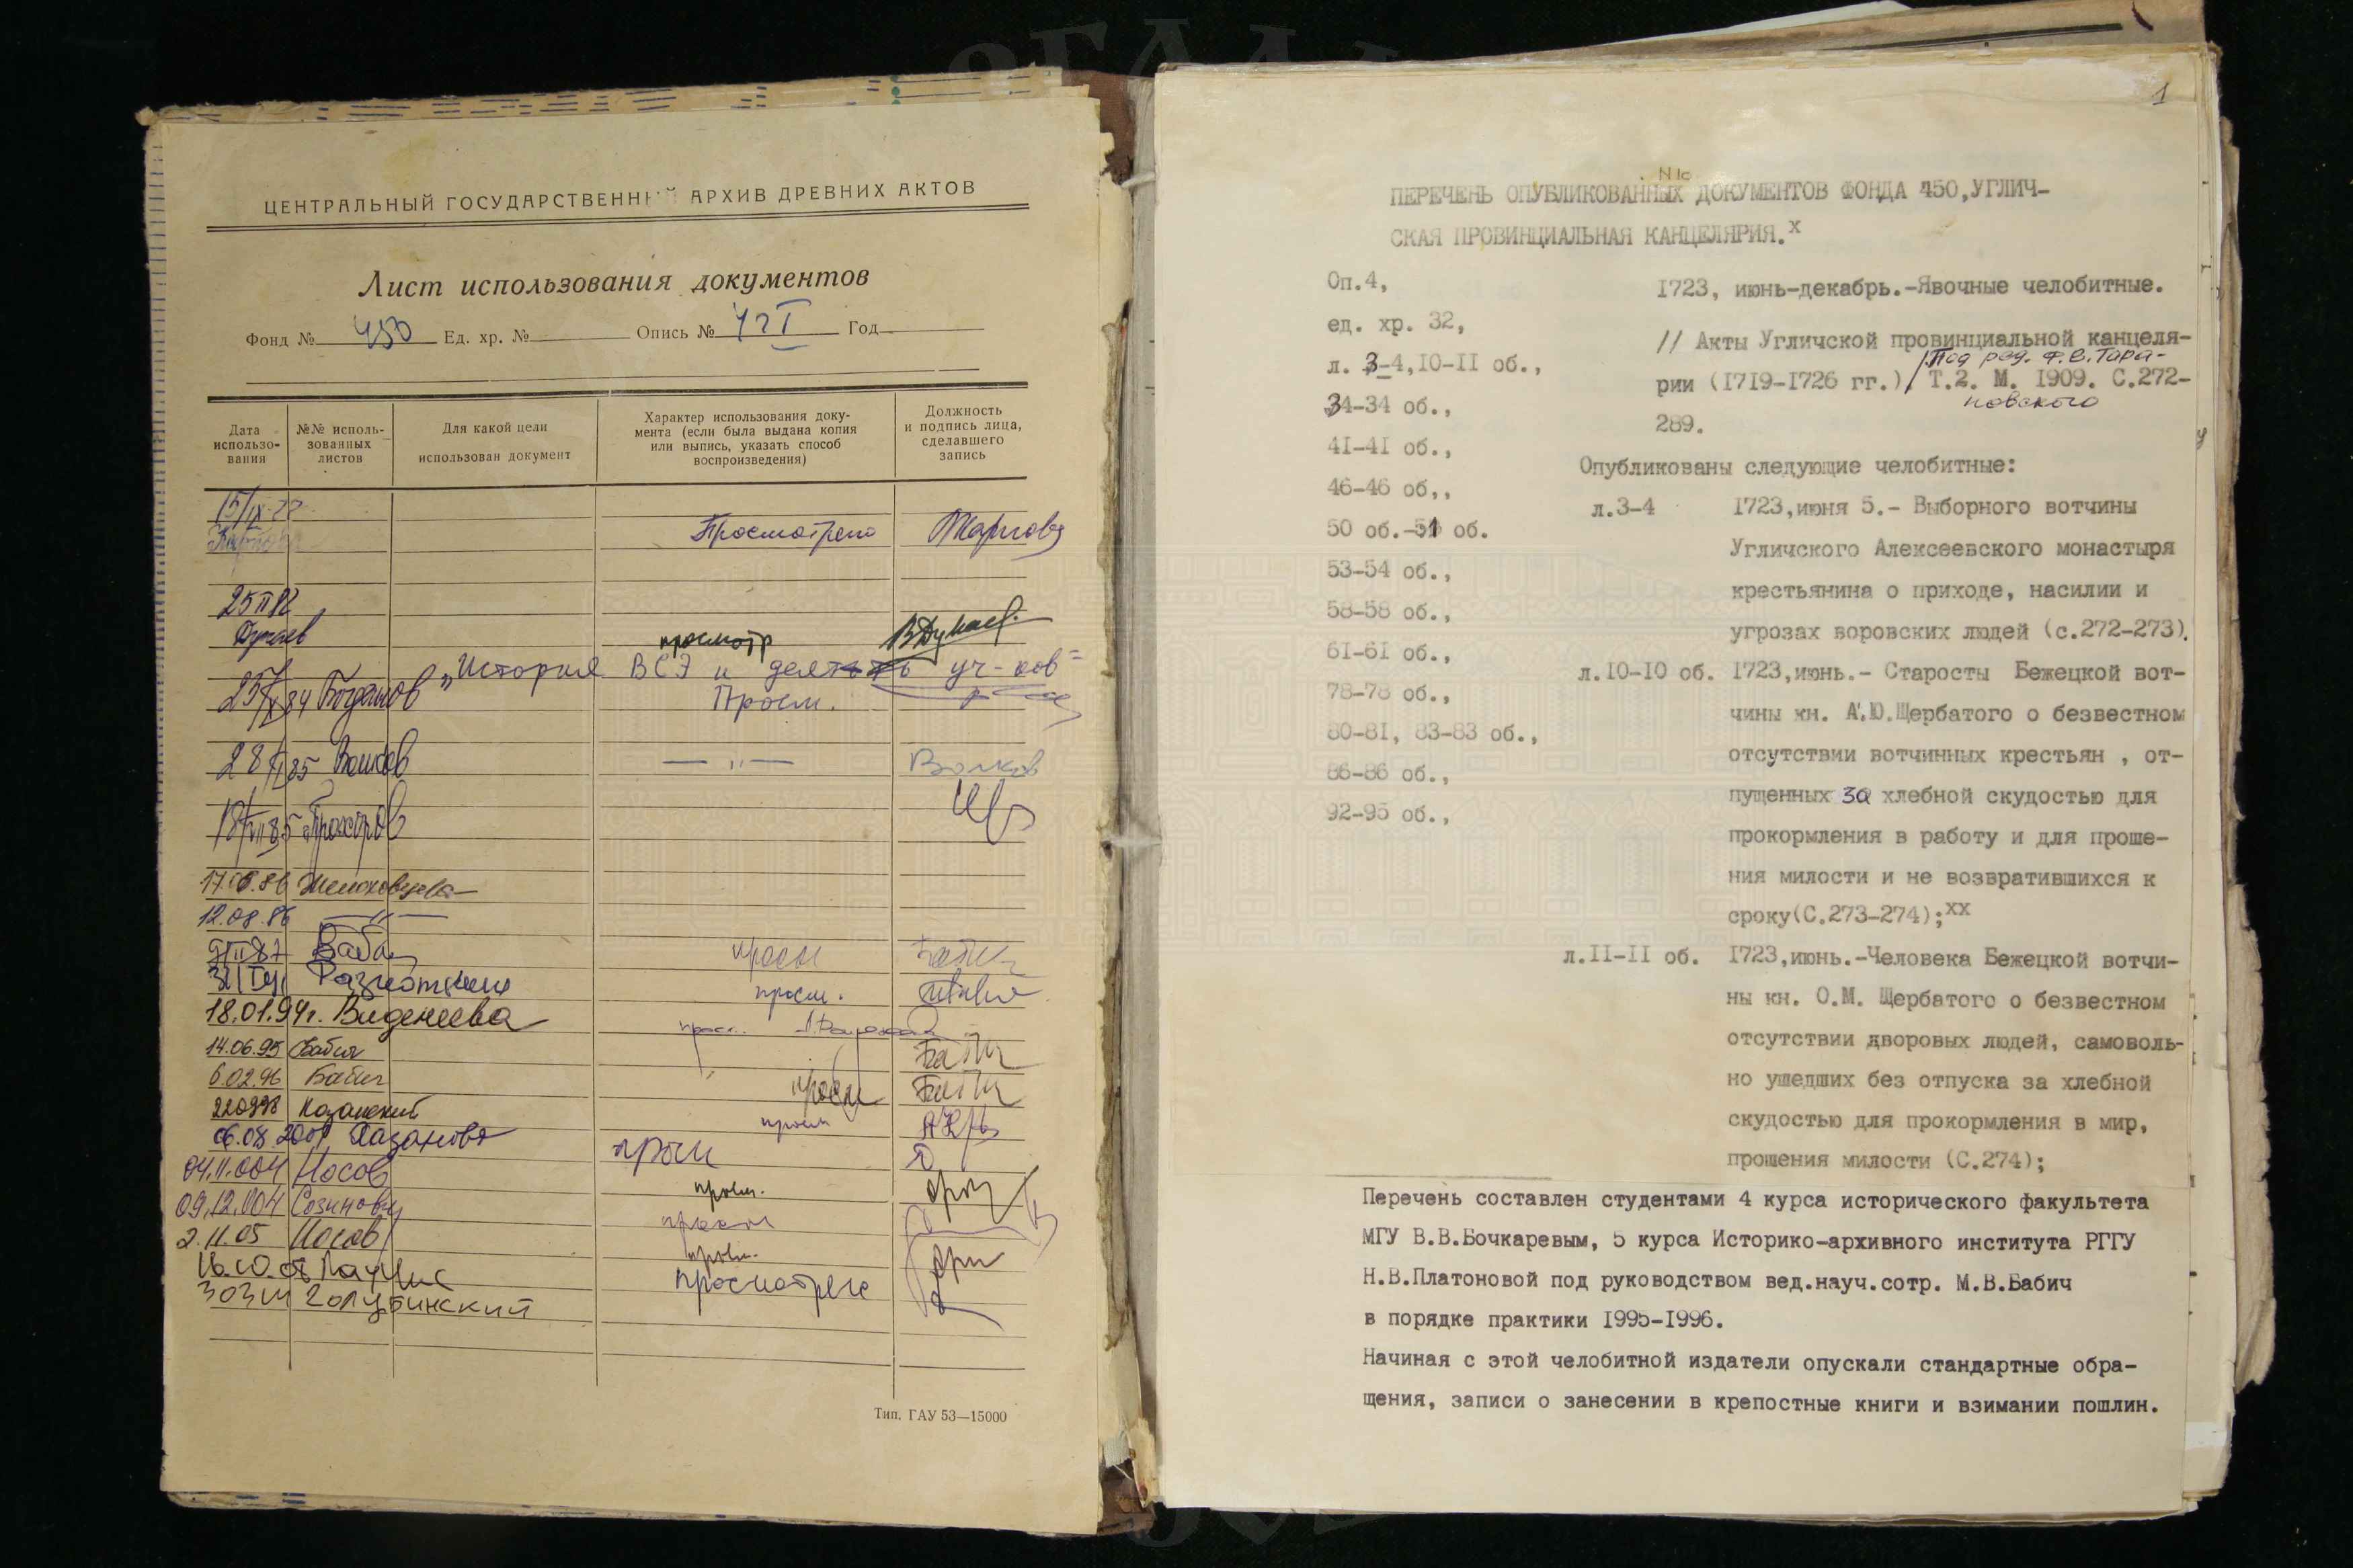 ЦЕНТРАЛЬНЫЙ ГОСУДАРСТВЕННЫЙ АРХИВ ДРЕВНИХ АКТОВ
Лист использования документов
Фонд № 450 Ед. хр. № Опись № Год
Дата использо-вания
№№ исполь-зованных листов
Для какой цели использован документ
Характер использования доку-мента (если была выдана копия или выпись, указать способ воспроизведения)
Должность и подпись лица, сделавшего запись
Просмотрено
Дунаев просмотр
"История ВСЭ и
Богданов Просм.
Волков — „ — Волков
17.06.86
12.08.86 — „ —
просм
просм.
18.01.94г. Виденеева
14.06.95 Бабич
6.02.96 Бабич просм
Казанский просм
06.08.2001 просм
04.11.004 Носов просм.
09.12.004 просм
2.11.05 Носов просм.
просмотрено
Голубинский
Тип. ГАУ 53—15000
1
ПЕРЕЧЕНЬ ОПУБЛИКОВАННЫХ ДОКУМЕНТОВ ФОНДА 450,УГЛИЧ-
СКАЯ ПРОВИНЦИАЛЬНАЯ КАНЦЕЛЯРИЯ.х
Оп.4,
ед. хр. 32,
л. 3-4,10-11 об.,
34-34 об.,
41-41 об.,
46-46 об,,
50 об.-51 об.
53-54 об.,
58-58 об.,
61-61 об.,
78-78 об.,
80-81, 83-83 об.,
86-86 об.,
92-95 об.,
1723, июнь-декабрь.-Явочные челобитные.
// Акты Угличской провинциальной канцеля-
/Под ред. Ф.В.Тара-
рии (1719-1726 гг.)/ Т.2. М. 1909. С.272-
новского
289.
Опубликованы следующие челобитные:
л.3-4 1723,июня 5.- Выборного вотчины
Угличского Алексеевского монастыря
крестьянина о приходе, насилии и
угрозах воровских людей (с.272-273).
л.10-10 об. 1723,июнь.- Старосты Бежецкой вот-
чины кн. А.Ю.Щербатого о безвестном
отсутствии вотчинных крестьян , от-
пущенных за хлебной скудостью для
прокормления в работу и для проше-
ния милости и не возвратившихся к
сроку(С.273-274);хх
л.11-11 об. 1723,июнь.-Человека Бежецкой вотчи-
ны кн. О.М. Щербатого о безвестном
отсутствии дворовых людей, самоволь-
но ушедших без отпуска за хлебной
скудостью для прокормления в мир,
прошения милости (С.274);
Перечень составлен студентами 4 курса исторического факультета
МГУ В.В.Бочкаревым, 5 курса Историко-архивного института РГГУ
Н.В.Платоновой под руководством вед.науч.сотр. М.В.Бабич
в порядке практики 1995-1996.
Начиная с этой челобитной издатели опускали стандартные обра-
щения, записи о занесении в крепостные книги и взимании пошлин.